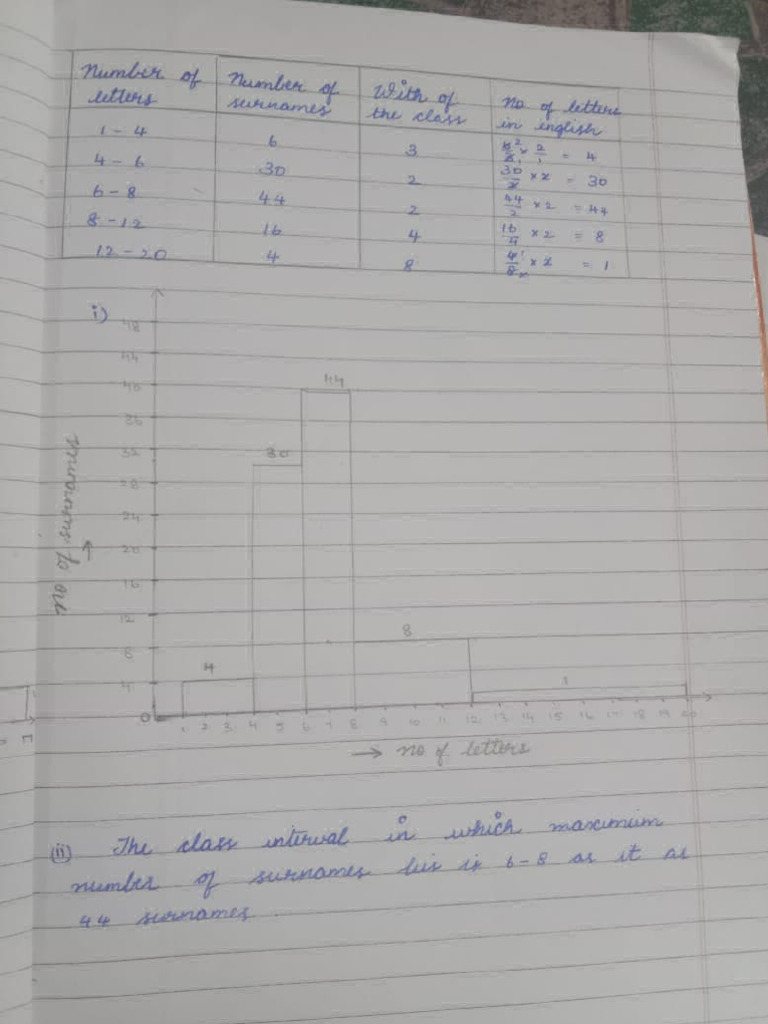 Number of letters | Number of surnames | With of the class | No of letters in english
1 - 4 | 6 | 3 | 6/3 × 2/1 = 4
4 - 6 | 30 | 2 | 30/2 × 2 = 30
6 - 8 | 44 | 2 | 44/2 × 2 = 44
8 - 12 | 16 | 4 | 16/4 × 2 = 8
12 - 20 | 4 | 8 | 4/8 × 2 = 1
i)
48
44
44
40
36
32
30
28
24
20
16
12
8
8
4
4
1
0
1 2 3 4 5 6 7 8 9 10 11 12 13 14 15 16 17 18 19 20
no of surnames →
→ no of letters
(ii) The class interval in which maximum
number of surnames lis is 6-8 as it as
44 surnames.